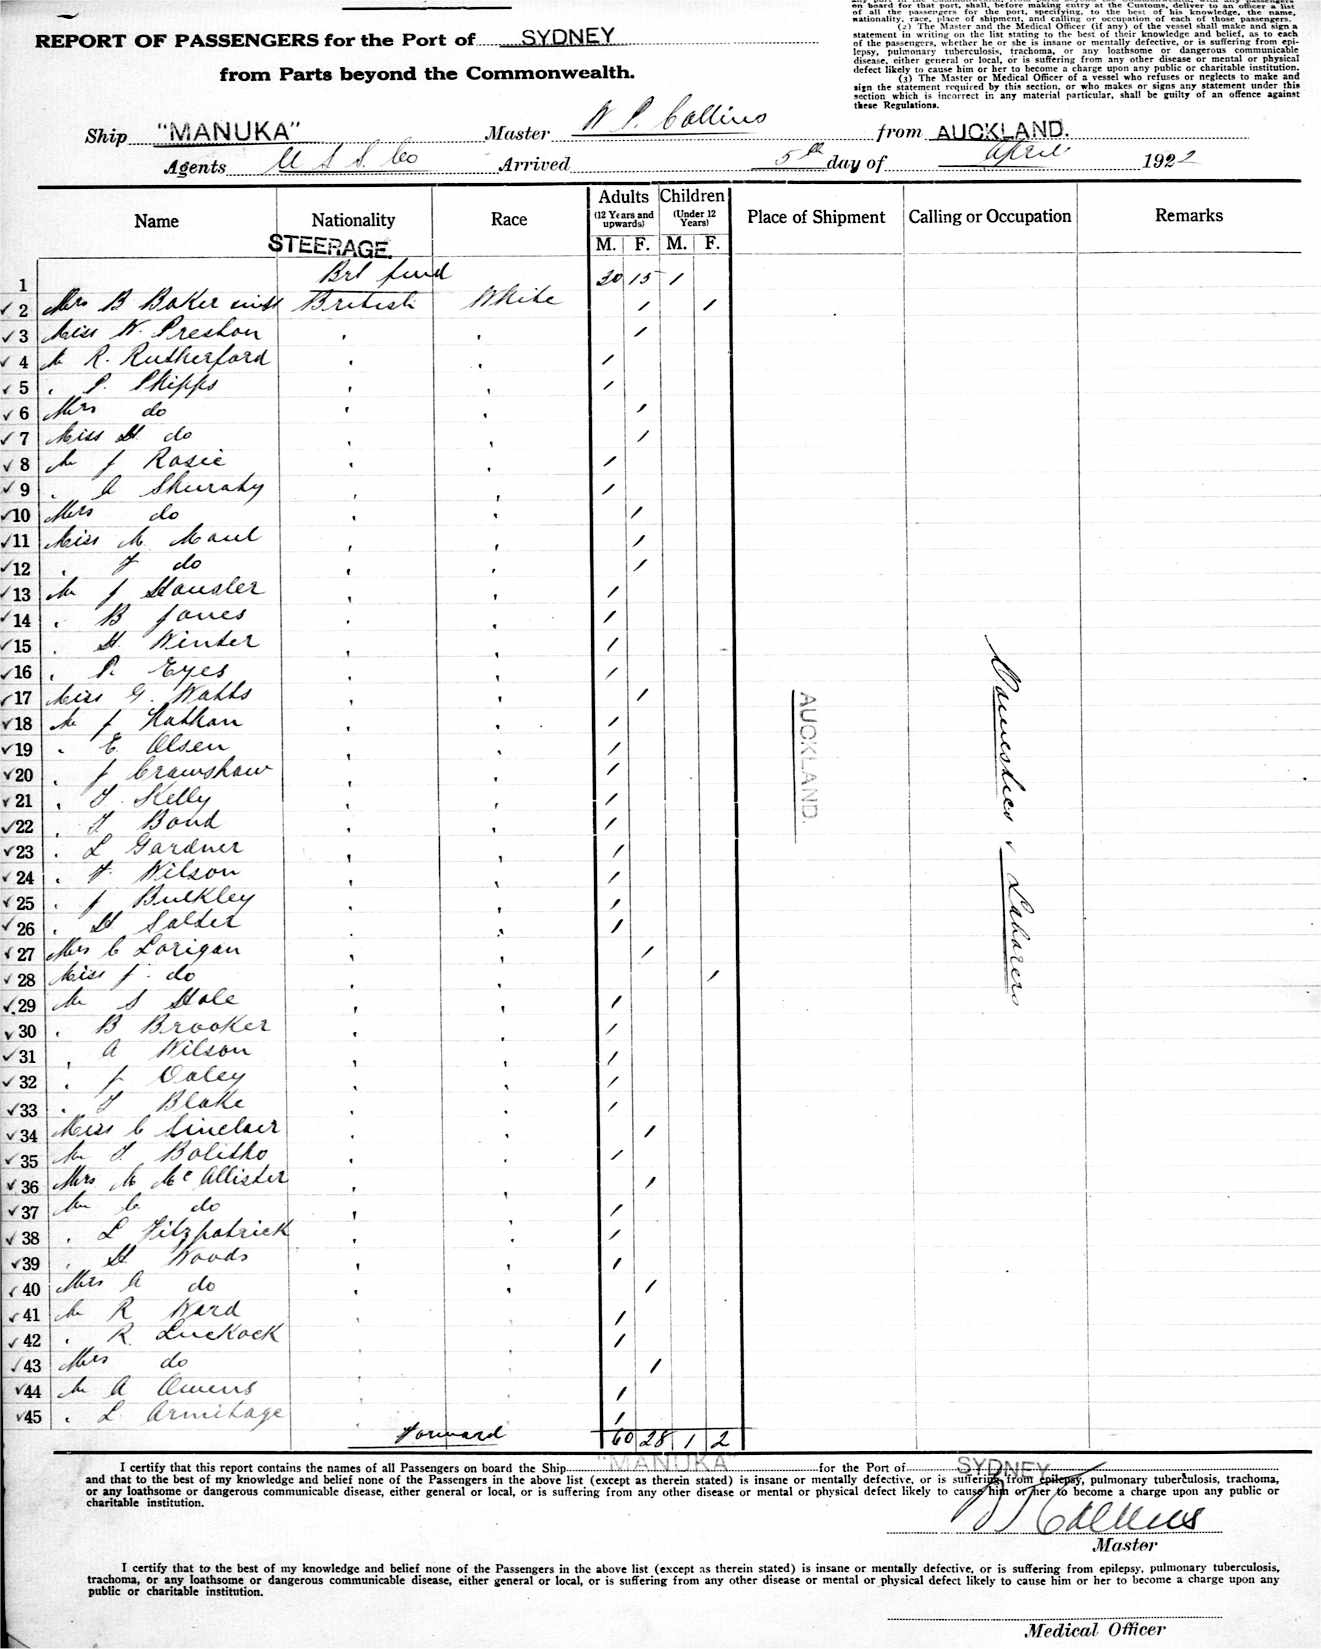 on board for that port, shall, before making entry at the Customs, deliver to an officer a list
of all the passengers for the port, specifying, to the best of his knowledge, the name,
nationality, race, place of shipment, and calling or occupation of each of those passengers.
(2) The Master and the Medical Officer (if any) of the vessel shall make and sign a
statement in writing on the list stating to the best of their knowledge and belief, as to each
of the passengers, whether he or she is insane or mentally defective, or is suffering from epi-
lepsy, pulmonary tuberculosis, trachoma, or any loathsome or dangerous communicable
disease, either general or local, or is suffering from any other disease or mental or physical
defect likely to cause him or her to become a charge upon any public or charitable institution.
(3) The Master or Medical Officer of a vessel who refuses or neglects to make and
sign the statement required by this section, or who makes or signs any statement under this
section which is incorrect in any material particular, shall be guilty of an offence against
these Regulations.
REPORT OF PASSENGERS for the Port of SYDNEY
from Parts beyond the Commonwealth.
Ship "MANUKA" Master W P. Collins from AUCKLAND.
Agents U S S. Co Arrived 5th day of April 1922
Name Nationality Race Adults (12 Years and upwards) Children (Under 12 Years) Place of Shipment Calling or Occupation Remarks
STEERAGE. M. F. M. F.
1 Brt fwd 20 15 1
2 Mrs B Baker British White / /
3 Miss W. Preston " " /
4 Mr R. Rutherford " " /
5 " P. Phipps " " /
6 Mrs do " " /
7 Miss H. do " " /
8 Mr J Rosie " " /
9 " A " " /
10 Mrs do " " /
11 Miss M. Maul " " /
12 " F do " " /
13 Mr J Hausler " " /
14 " B Jones " " /
15 " H. Winter " " /
16 " P. Eyes " " /
17 Miss G. Watts " " /
18 Mr J Nathan " " /
19 " E Olsen " " /
20 " J Crawshaw " " /
21 " T. Kelly " " /
22 " T Bond " " /
23 " L Gardner " " /
24 " F. Wilson " " /
25 " J Bulkley " " /
26 " H Salter " " /
27 Mrs C Lorigan " " /
28 Miss J. do " " /
29 Mr S Hole " " /
30 " B Brooker " " /
31 " A Wilson " " /
32 " J Oaley " " /
33 " T Blake " " /
34 Miss C Sinclair " " /
35 Mr T. Bolitho " " /
36 Mrs M McAllister " " /
37 Mr C do " " /
38 " L Fitzpatrick " " /
39 " H Woods " " /
40 Mrs A do " " /
41 Mr R Ward " " /
42 " R. Luckock " " /
43 Mrs do " " /
44 Mr A Owens " " /
45 " L Armitage " " /
AUCKLAND.
Domestics & Laborers
Forward 60 28 1 2
I certify that this report contains the names of all Passengers on board the Ship "MANUKA" for the Port of SYDNEY
and that to the best of my knowledge and belief none of the Passengers in the above list (except as therein stated) is insane or mentally defective, or is suffering from epilepsy, pulmonary tuberculosis, trachoma,
or any loathsome or dangerous communicable disease, either general or local, or is suffering from any other disease or mental or physical defect likely to cause him or her to become a charge upon any public or
charitable institution.
Collins
Master
I certify that to the best of my knowledge and belief none of the Passengers in the above list (except as therein stated) is insane or mentally defective, or is suffering from epilepsy, pulmonary tuberculosis,
trachoma, or any loathsome or dangerous communicable disease, either general or local, or is suffering from any other disease or mental or physical defect likely to cause him or her to become a charge upon any
public or charitable institution.
Medical Officer